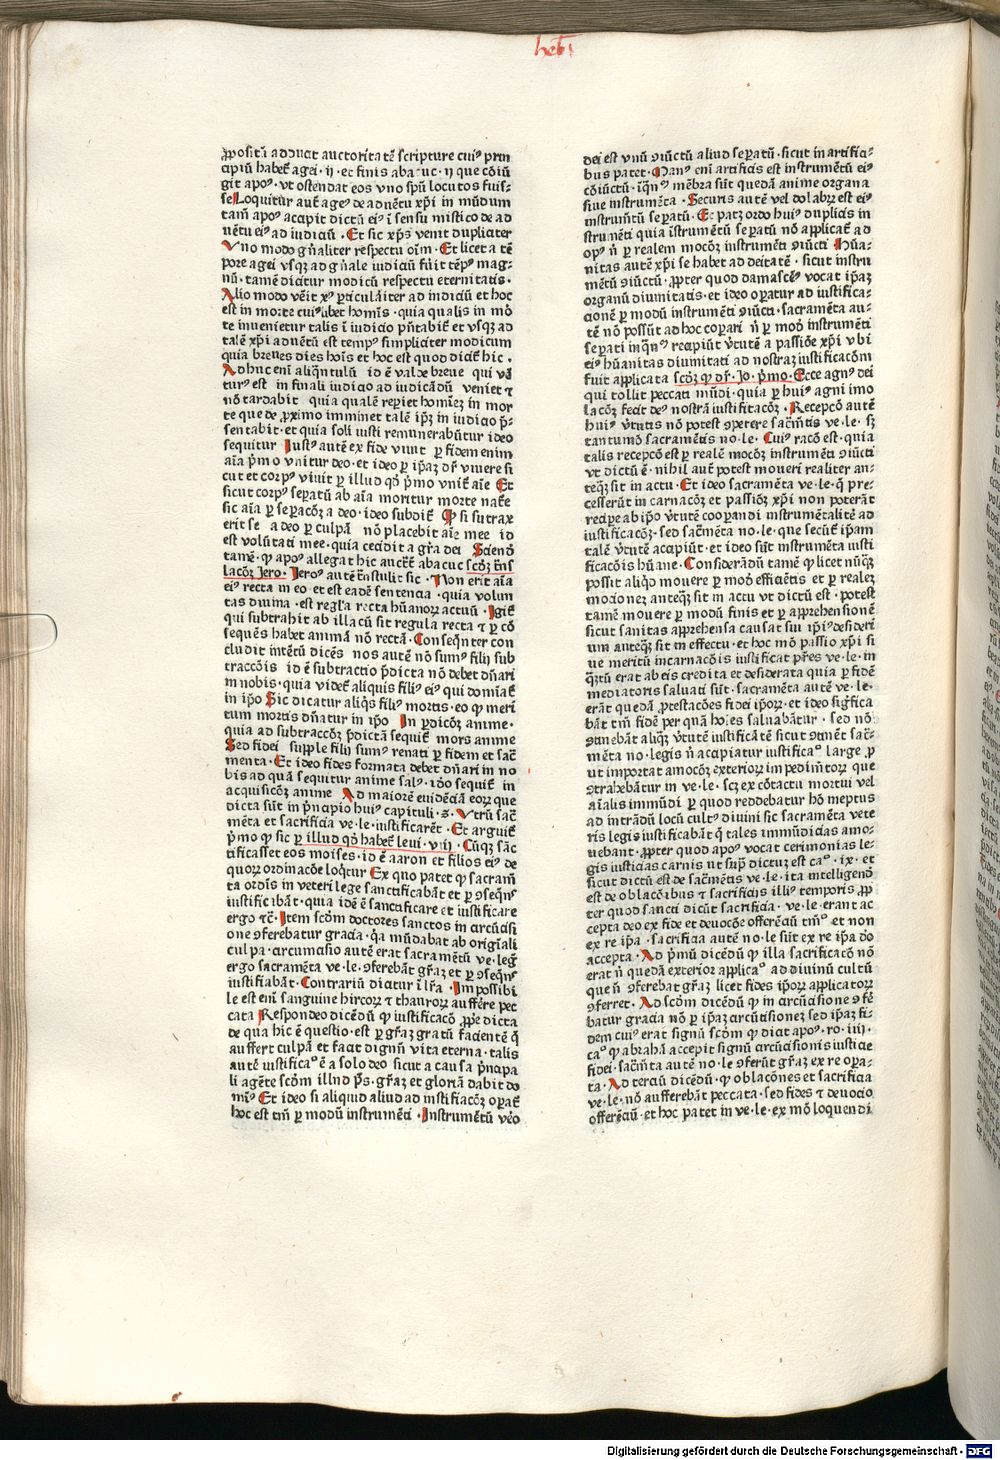 hebꝛ
ꝓpositū adducit auctoritatē scripture cuiꝰ prin
cipiū habet᷑ agei · ij · et finis abacuc · ij que cōiū
git apoꝰ · vt ostendat eos vno spū locutos fuis⸗
se Loquitur aut᷑ ageꝰ de aduētu xp̄i in mūdum
tam̄ apoꝰ accipit dictū eiꝰ ī sensu mistico de ad
uētu eiꝰ ad iudiciū · Et sic xp̄s venit dupliciter
Vno modo gn̄aliter respectu oīm · Et licet a tē
pore agei vsqꝫ ad gn̄ale iudiciū fuīt tēpꝰ mag⸗
nū · tamē dicitur modicū respectu eternitatis ·
Alio modo vēit xꝰ ꝑticularīter ad iudiciū et hoc
est in morte cuiꝰlibet homīs · quia qualis in mō
te inuenietur talis ī iudicio pn̄tabit᷑ et vsqꝫ ad
talē xp̄i aduētū est tempꝰ simpliciter modicum
quia breues dies hoīs et hoc est quod dicit᷑ hic ·
Adhuc enī aliqn̄tulū id ē valde breue qui vē
turꝰ est in finali iudicio ad iudicādū veniet ⁊
nō tardabit quia qualē repiet homīeꝫ in mor
te que de ꝓximo imminet talē ip̄ꝫ in iudicio p̄⸗
sentabit · et quia soli iusti remunerabūtur ideo
sequitur Iustꝰ autē ex fide viuit ꝑ fidem enim
aīa p̄mo vnitur deo · et ideo ꝑ ip̄aꝫ dr̄ viuere si
cut et corpꝰ viuit ꝑ illud qd̄ p̄mo vnit᷑ aīe Et
sicut corpꝰ sepatū ab aīa moritur morte nat᷑e
sic aīa ꝑ sepacōꝫ a deo · ideo subdit᷑ Qꝫ si subtrax
erit se a deo ꝑ culpā nō placebit aīe mee id
est volūtati mee · quia cecidit a grā dei Sciend̄
tamē · ꝙ apoꝰ allegat hic auctēꝫ abacuc scd̄ꝫ trn̄s
lacōꝫ Jero · Jeroꝰ autē trn̄stulit sic · Non erit aīa
eiꝰ recta in eo · et est eadē sentencia · quia volun
tas diuina · est regl̄a recta hūanoꝝ actuū · Igit᷑
qui subtrahit ab illa cū sit regula recta ⁊ ꝑ cō
sequēs habet animā nō rectā · Conseqn̄ter con
cludit intētū dicēs nos autē nō sumꝰ filij sub
traccōis id ē subtractio p̄dicta nō debet dn̄ari
in nobis · quia videt᷑ aliquis filiꝰ eiꝰ qui domīat᷑
in ip̄o Sic dicatur aliqs̄ filiꝰ mortis · eo ꝙ meri
tum mortis dn̄atur in ip̄o In ꝑdicōꝫ anime ·
quia ad subtraccōꝫ p̄dictā sequit᷑ mors anime
Sed fidei supple filij sumꝰ renati ꝑ fidem et sac̄
menta · Et ideo fides formata debet dn̄ari in no
bis ad quā sequitur anime salꝰ · iō sequit᷑ in
acquisicōꝫ anime Ad maiorē euidēciā eoꝝ que
dicta sūt in p̄ncipio huiꝰ capituli · 3 · Vtrū sac̄
mēta et sacrificia ve · le · iustificarēt · Et arguit᷑
p̄mo ꝙ sic ꝑ illud qd̄ habet᷑ leui · viij · Cūqꝫ sāc
tificasset eos moises · id ē aaron et filios eiꝰ de
quoꝝ ordinacōe loqt̄ur Ex quo patet ꝙ sacram̄
ta ordīs in veteri lege sanctificabāt et ꝑ ꝯseqn̄s
iustific ibāt · quia idē ē sanctificare et iustificare
ergo ⁊c̄ · Item scd̄m doctores sanctos in circūcisi
one ꝯferebatur gracia · q̄a mūdabat ab origīali
culpa · circumcisio autē erat sacramētū ve · leg̅
ergo sacramēta ve · le · ꝯferebāt gr̄aꝫ et ꝑ ꝯseqn̄s
iustifiabāt · Contrariū dicitur ī lr̄a · Impossibi
le est enī sanguine hircoꝝ ⁊ thauroꝝ aufferre pec
cata Respondeo dicēdū ꝙ iustificacō ꝓprie dicta
de qua hic ē questio · est ꝑ gr̄aꝫ gratū facientē q̄
auffert culpā et facit dignū vita eterna · talis
autē iustificaꝰ ē a solo deo sicut a causa p̄ncipa
li agēte scd̄m illud ps̄ · gr̄aꝫ et gloriā dabit do
miꝰ Et ideo si aliquid aliud ad iustificacōꝫ opat᷑
hoc est tm̄ ꝑ modū instrumēti · Instrumētū v̄o
dei est vnū ꝯiūctū aliud sepatū · sicut in artificia⸗
bus patet · Manꝰ enī artificis est instrumētū eiꝰ
cōiūctū · iqn̄ꝰ mēbra sūt quedā anime organa
siue instrumēta · Securis autē vel dolabꝝ est eiꝰ
instrumt̄ū sepatū · Et patꝫ ordo huiꝰ duplicis in
strumēti quia īstrumētū sepatū nō applicat᷑ ad
opꝰ n̄ ꝑ realem mocōꝫ instrumēti ꝯiūcti Hūa⸗
nitas autē xp̄i se habet ad deitatē · sicut instru
mētū ꝯiūctū · ꝓpter quod damasceꝰ vocat ip̄aꝫ
organū diuinitatis · et ideo opatur ad iustifica⸗
cionē ꝑ modū instrumēti ꝯiūcti · sacramēta au⸗
tē nō possūt ad hoc copari n̄ ꝑ mod̄ instrumēti
sepati inqn̄ꝰ recipiūt v̄tutē a passiōe xp̄i vbi
eiꝰ hūanitas diuinitati ad nostraꝫ iustificacōm̄
fuit applicata scd̄ꝫ ꝙ dr̄ · Jo · p̄mo · Ecce agnꝰ dei
qui tollit peccati mūdi · quia ꝑ huiꝰ agni īmo
lacōꝫ fecit deꝰ nostrā iustificacōꝫ · Recepcō autē
huiꝰ v̄tutis nō potest ꝯpetere sacm̄tis ve · le · sꝫ
tantumō sacramētis no · le · Cuiꝰ racō est · quia
talis recepcō est ꝑ realē mocōꝫ instrumēti ꝯiūcti
vt dictū ē · nihil aut᷑ potest moueri realiter an⸗
teqꝫ sit in actu · Et ideo sacramēta ve · le · q̄ pre⸗
cesserūt incarnacōꝫ et passiōꝫ xp̄i non poterāt
recipe ab ip̄o v̄tutē coopandi instrumētalitē ad
iustificacōꝫ · sed sac̄mēta no · le · que secūt᷑ ip̄am
talē v̄tutē accipiūt · et ideo sūt instrumēta iusti
ficacōis hūane · Considerādū tamē ꝙ licet nūqꝫ
possit aliqd̄ mouere ꝑ mod̄ efficiētis et ꝑ realeꝫ
mocioneꝫ anteqꝫ sit in actu vt dictū est · potest
tamē mouere ꝑ modū finis et ꝑ apprehensionē
sicut sanitas apprehensa causat sui ip̄iꝰ desideri
um anteqꝫ sit in effectu · et hoc mō passio xp̄i si
ue meritū incarnacōis iustificat pr̄es ve · le · in
qn̄tū erat ab eis credita et desiderata quia ꝑ fidē
mediatoris saluati sūt · sacramēta autē ve · le ·
erāt quedā ꝓtestacōes fidei ip̄oꝝ · et ideo sigīfica
bāt tm̄ fidē per quā hoīes saluabātur · sed nō
ꝯtinebāt aliqꝫ v̄tutē iustificātē sicut ꝯtinēt sac̄⸗
mēta no · legis n̄ accipiatur iustificaꝰ large ꝓ
ut importat amocōꝫ exterioꝝ impedim̄toꝝ que
ꝯtrahebātur in ve · le · scꝫ ex cōtactu mortui vel
aīalis immūdi ꝑ quod reddebatur hō ineptus
ad intrādū locū cultꝰ diuini sic sacramēta vete
ris legis iustificabāt q̄ tales immūdicias amo⸗
uebant · ꝓpter quod apoꝰ vocat cerimonias le⸗
gis iusticias carnis ut sup̄ dictuꝫ est caꝰ · ix · et
sicut dictū est de sac̄mētis ve · le · ita intelligend̄
est de oblacōibus ⁊ sacrificīs illiꝰ temporis ꝓp
ter quod sancti dicūt sacrificia · ve · le · erant ac
cepta deo ex fide et deuocōe offerēciū tm̄ꝰ et non
ex re ip̄a · sacrificia autē no · le sūt ex re ip̄a do
accepta · Ad p̄mū dicēdū ꝙ illa sacrificatō nō
erat n̄ quedā exterior applicaꝰ ad diuinū cultū
que n̄ ꝯferebat gr̄aꝫ licet fides ip̄oꝝ applicatoꝝ
ꝯferret · Ad scd̄m dicēdū ꝙ in circūcisione ꝯfe᷑
batur gracia nō ꝑ ip̄aꝫ circūcisioneꝫ sed ip̄aꝫ fi⸗
dem cuiꝰ erat signū scd̄m ꝙ dicit apoꝰ · ro · iiij ·
caꝰ ꝙ abrahā accepit signū circūcisionis iusticie
fidei · sacm̄ta autē no · le ꝯferūt gr̄aꝫ ex re opa⸗
ta · Ad terciū dicēdū · ꝙ oblacōnes et sacrificia
ve · le · nō aufferebāt peccata · sed fides ⁊ deuocio
offerēciū · et hoc patet in ve · le · ex mō loquendi
Digitalisierung gefördert durch die Deutsche Forschungsgemeinschaft - DFG